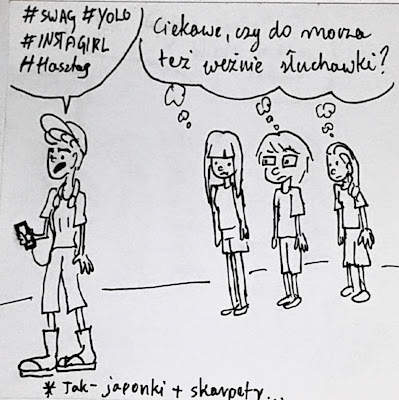 #SWAG #YOLO
#INSTAGIRL
#Hasztag
Ciekawe, czy do morza
też weźnie słuchawki?
* Tak - japonki + skarpety...